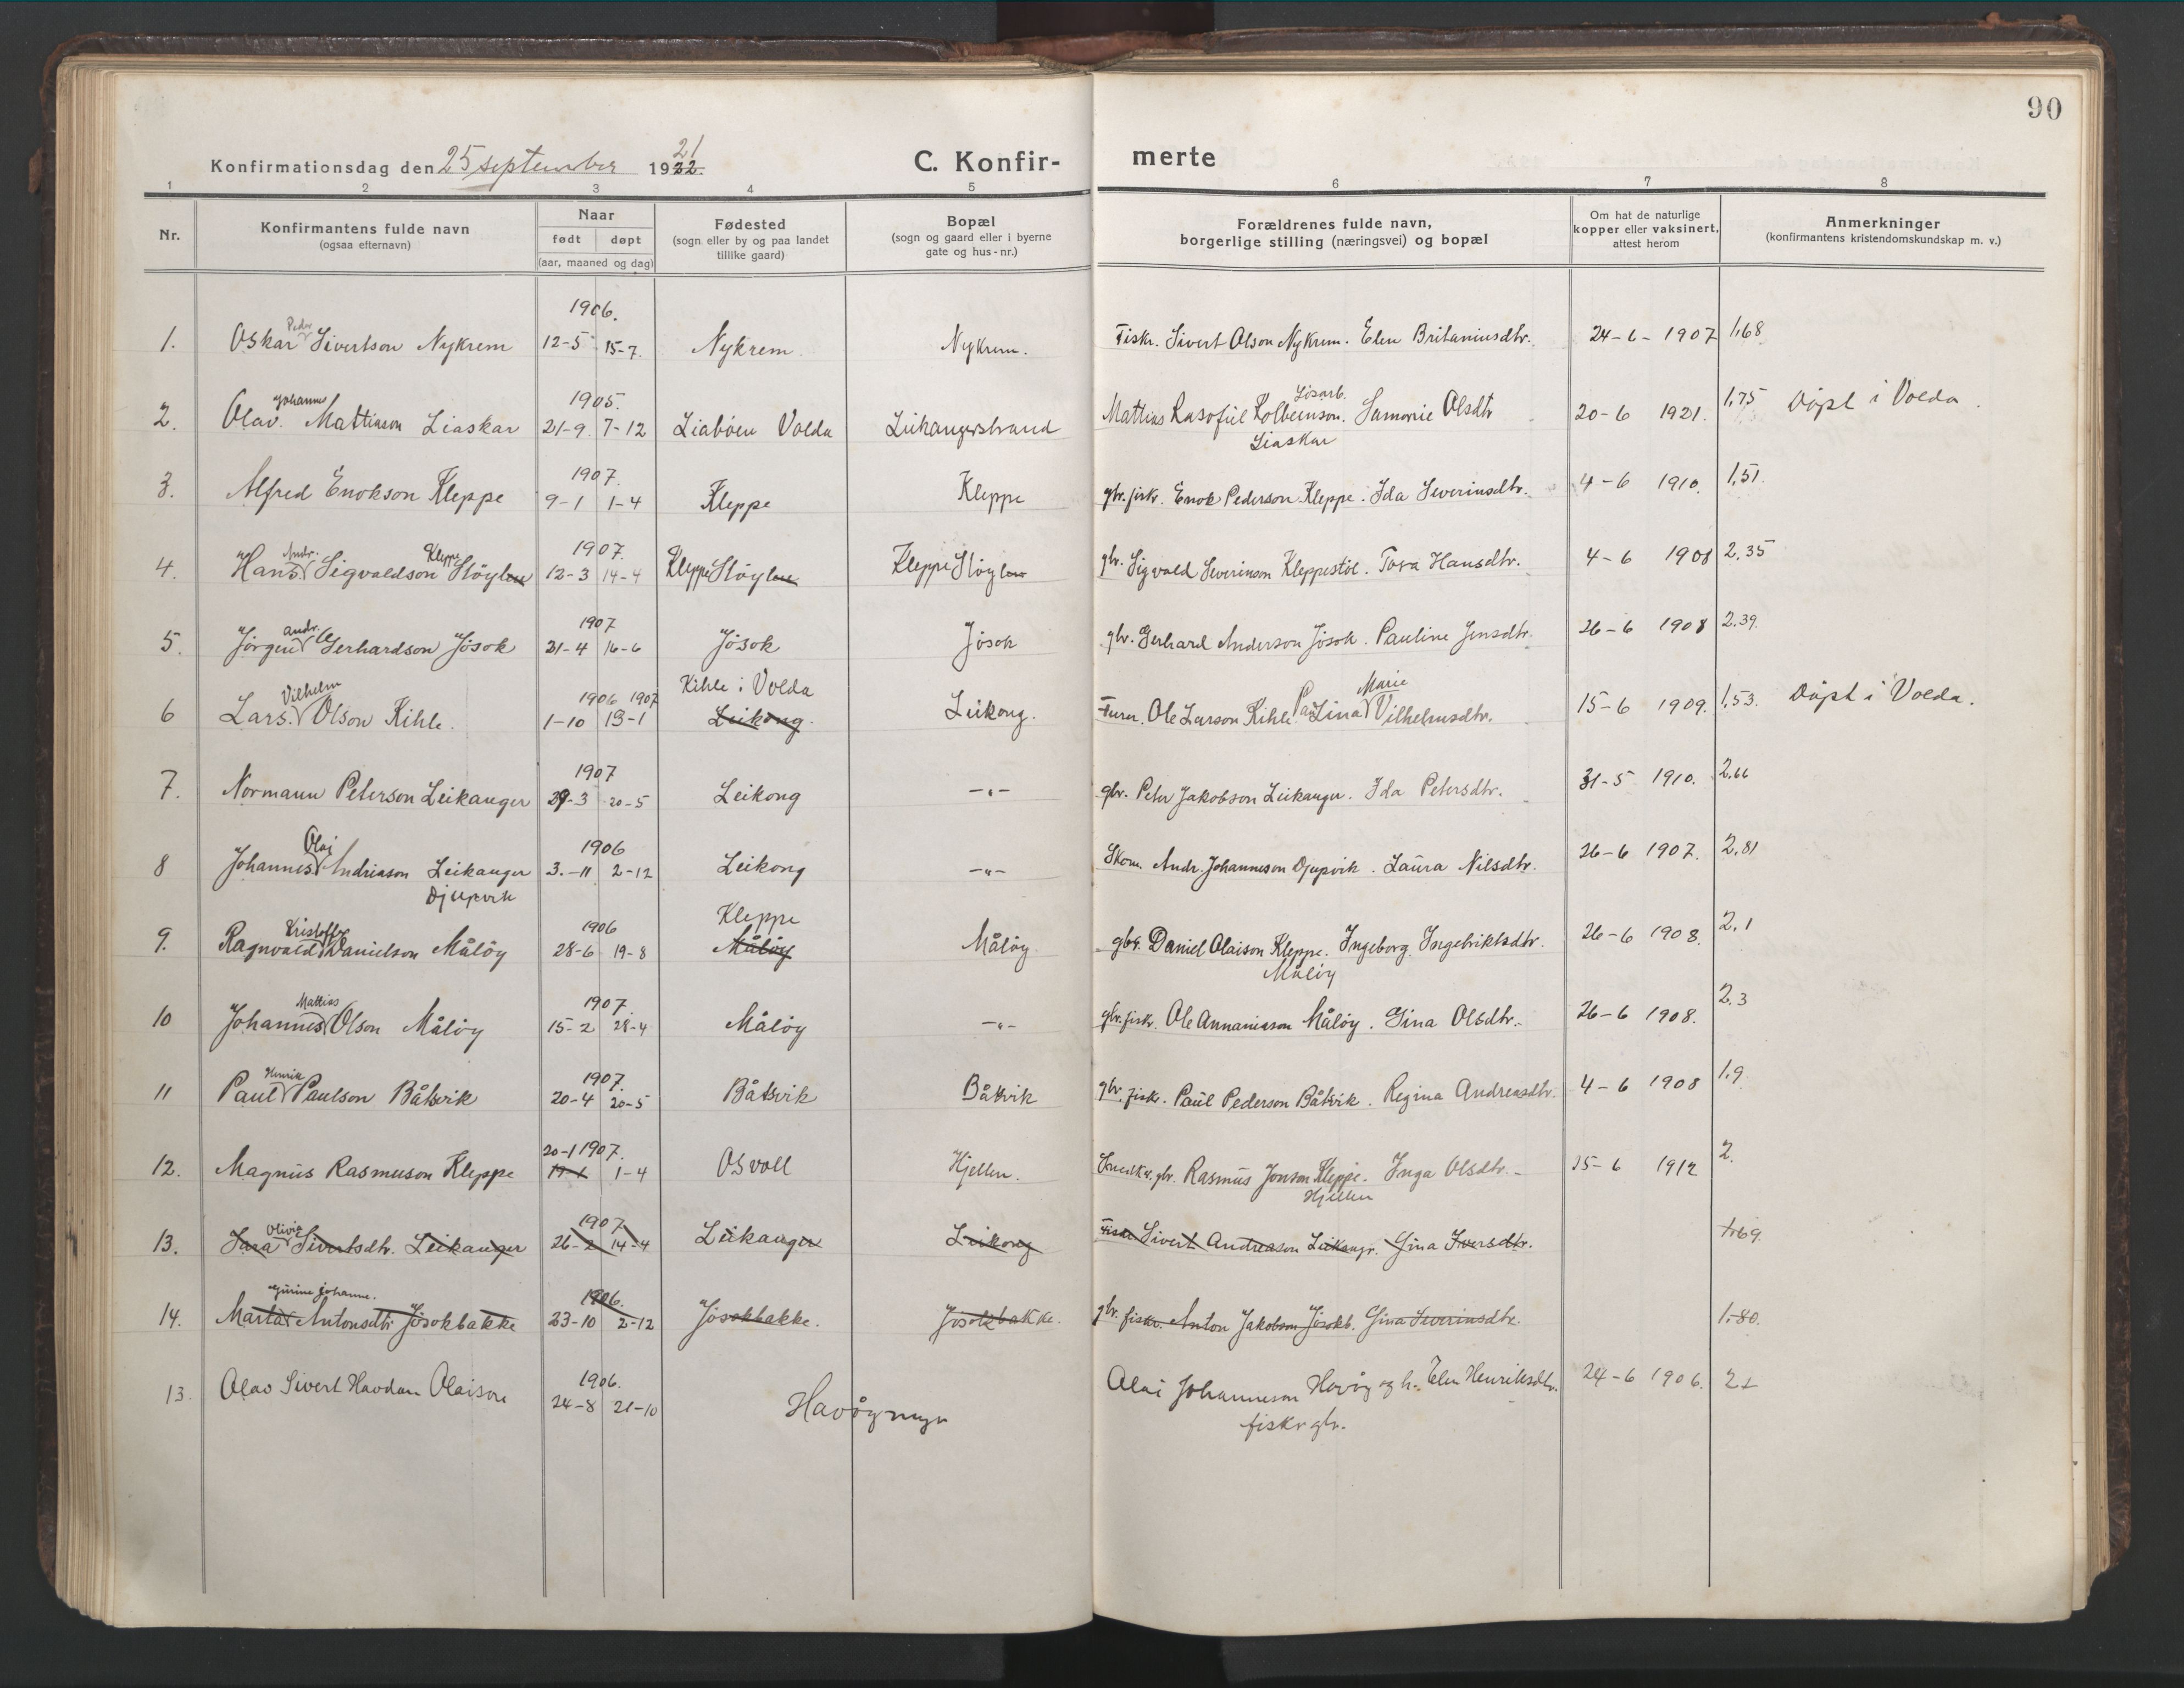 90
Konfirmationsdag den 25 september 1922. 21
C. Konfir- merte
1 2 3 4 5 6 7 8
Nr.
Konfirmantens fulde navn
(ogsaa efternavn)
Naar
født døpt
(aar, maaned og dag)
Fødested
(sogn eller by og paa landet
tillike gaard)
Bopæl
(sogn og gaard eller i byerne
gate og hus-nr.)
Forældrenes fulde navn,
borgerlige stilling (næringsvei) og bopæl
Om hat de naturlige
kopper eller vaksinert,
attest herom
Anmerkninger
(konfirmantens kristendomskundskap m. v.)
1906.
Peder
1. Oskar Sivertson Nykrem 12-5 15-7. Nykrem. Nykrem. Fiskr. Sivert Olson Nykrem. Elen Britaniusdtr. 24-6-1907 1,68
Johannes 1905. Løsarb.
2. Olav. Mattiason Liaskar 21-9. 7-12 Liabøen Volda Leikangerstrand Mattias Rasofiel Kolbeinson. Samorie Olsdtr 20-6 1921. 1,75 Døpt i Volda.
Liaskar
1907.
3. Alfred Enokson Kleppe 9-1 1-4 Kleppe Kleppe gbr. fiskr. Enok Pederson Kleppe. Ida Severinsdtr. 4-6 1910. 1,51.
Andr. Kleppe 1907.
4. Hans Sigvaldson Støylen 12-3 14-4 Kleppe Støylen Kleppe Støylen gbr. Sigvald Severinson Kleppestøl. Tora Hansdtr. 4-6 1908 2,35
andr. 1907
5. Jørgen Gerhardson Jøsok 21-4 16-6 Jøsok Jøsok gbr. Gerhard Anderson Jøsok. Pauline Jensdtr. 26-6 1908 2.39.
Vilhelm 1906 1907 Kihle i Volda Marie
6 Lars. Olson Kihle. 1-10 13-1 Leikong. Leikong. Furer. Ole Larson Kihle. Pa Lina Vilhelmsdtr. 15-6 1909. 1,53. Døpt i Volda.
1907
7. Normann Peterson Leikanger 29-3 20-5 Leikong -"- gbr. Peter Jakobson Leikanger. Ida Petersdtr. 31-5 1910. 2,66
Olai 1906
8 Johannes Andreason Leikanger 3.-11 2-12 Leikong -"- Skom. Andr. Johanneson Djupvik. Laura Nilsdtr. 26-6 1907. 2,81
Djupvik
Kristoffer 1906 Kleppe
9. Ragnvald Danielson Måløy 28-6 19-8 Måløy Måløy. gbr. Daniel Olaison Kleppe. Ingeborg Ingebriktsdtr. 26-6 1908. 2,1
Måløy
Mattias 1907.
10 Johannes Olson Måløy 15-2 28-4 Måløy -"- gbr. fiskr. Ole Annaniason Måløy. Gina Olsdtr. 26-6 1908. 2.3
Henrik 1907.
11 Paul Paulson Båtsvik 20-4 20-5 Båtsvik Båtsvik gbr. fiskr. Paul Pederson Båtsvik. Regina Andreasdtr. 4-6 1908 1.9.
20-1 1907.
12. Magnus Rasmuson Kleppe 19-1 1-4 Osvoll Hjellen. gbr. Rasmus Jonson Kleppe. Inga Olsdtr. 15-6 1912 2.
Hjellen
Olivia 1907.
13. Sara Sivertsdtr. Leikanger 26-2 14-4 Leikanger Leikong Fiskr Sivert Andreason Leikangr. Gina Iversdtr. 1,69.
Gurine Johanne. 1906.
14. Marta Antonsdtr Jøsokbakke 23-10 2-12 Jøsokbakke. Jøsokbakke. gbr. fiskr. Anton Jakobson Jøsokb. Gina Severinsdtr. 1,80.
1906.
13. Olav Sivert Havdan Olaison 24-8 21-10 Havøymyr Olai Johanneson Havøy og h. Elen Henriksdtr. 24-6 1906. 2+
fiskr gbr.